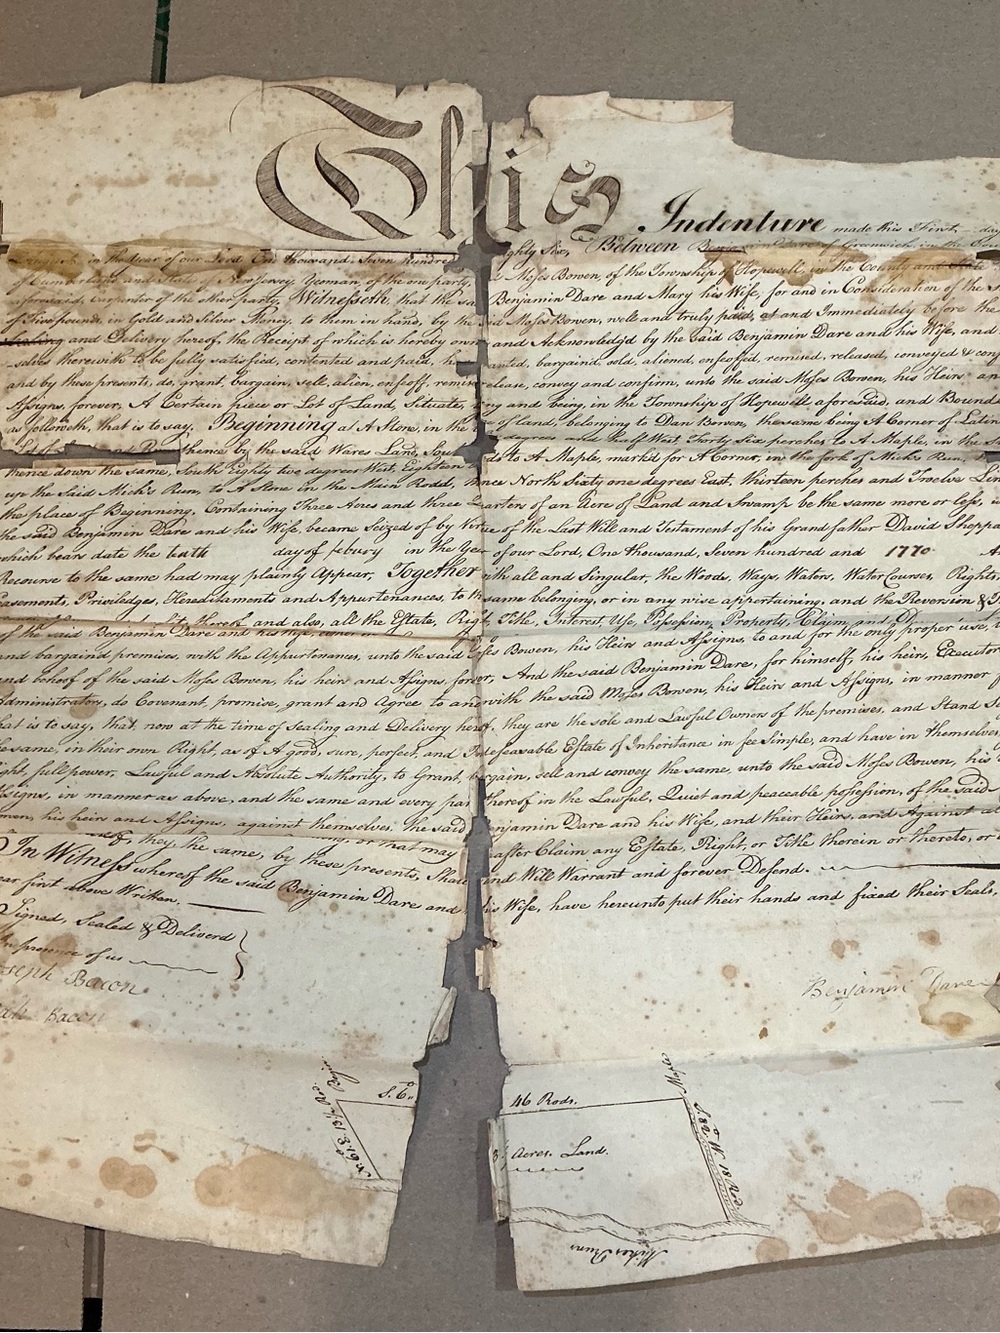 This Indenture made this First day
August, in the Year of our Lord One thousand Seven hundre ighty Six, Between Benjamin Dare of Greenwich, in the Cou
of Cumberland and State of New Jersey Yeoman, of the one party, Moses Bowen, of the Township of Hopewell, in the County and State
aforesaid, carpenter of the other party, Witnesseth, that the sa Benjamin Dare and Mary his Wife, for and in Consideration of the
of Five pounds, in Gold and Silver Money, to them in hand, by the id Moses Bowen, well and truly paid, at and Immediately before the
and Delivery hereof, the Receipt of which is hereby own and Acknowledg'd by the said Benjamin Dare and his Wife, and
selves therewith to be fully satisfied, contented and paid, ha anted, bargaind, sold, aliened, enfeoffed, remised, released, conveyed & con
and by these presents, do, grant, bargain, sell, alien, enfeoff, remise elease, convey and confirm, unto the said Moses Bowen, his Heirs and
Assigns, forever, A Certain piece or Lot of Land, Situate, ing and being, in the Township of Hopewell aforesaid, and Bound
as followeth, that is to say, Beginning at A Stone, in the of land, belonging to Dan Bowen, the same being A Corner of
thence by the said Wares Land, Sou degrees and half West, Forty Six perches to A Maple, in the
thence down the same, South Eighty two degrees West, Eighteen ds to A Maple, marked for A Corner, in the fork of Mick's Run,
up the Said Mick's Run, to A Stone in the Main Rodd, thence North Sixty one degrees East, thirteen perches and Twelve Lin
the place of Beginning, Containing Three Acres and three Quarters of an Acre of Land and Swamp be the same more or less,
the said Benjamin Dare and his Wife became Seized of by Virtue of the Last Will and Testament of his Grandfather David Sheppa
which bears date the tenth day of febury in the Year of our Lord, One thousand, Seven hundred and 1770
Recourse to the same had may plainly Appear, Together with all and Singular, the Woods, Ways, Waters, Water Courses, Rights
Easements, Priviledges, Hereditaments and Appurtenances, to the same belonging, or in any wise appertaining, and the Reversion &
thereof and also, all the Estate, Right, Title, Interest, Use, Possession, Property, Claim and
of the said Benjamin Dare and his
and bargaind premises, with the Appurtenances, unto the said Moses Bowen, his Heirs and Assigns, to and for the only proper use,
and behoof of the said Moses Bowen, his heirs and Assigns, forever, And the said Benjamin Dare, for himself, his heirs, Executor
Administrators, do Covenant, promise, grant and Agree, to and with the said Moses Bowen, his Heirs and Assigns, in manner
that is to say, that, now at the time of Sealing and Delivery hereof, they are the sole and Lawful Owners of the premises, and Stand
the same, in their own Right, as of A good, sure, perfect, and Indefeasable Estate of Inheritance in fee Simple, and have in themselves,
ight, full power, Lawful and Absolute Authority, to Grant, bargain, sell and convey the same, unto the said Moses Bowen, his
Assigns, in manner as above, and the same and every par thereof in the Lawful, Quiet and peaceable possession, of the said
wen, his heirs and Assigns, against themselves, the said Benjamin Dare and his Wife, and their Heirs, and Against
or that may after Claim any Estate, Right, or Title therein or thereto, or
they the same, by these presents, Shall and Will Warrant and forever Defend.
In Witness whereof the said Benjamin Dare and his Wife, have hereunto put their hands and fixed their Seals,
ear first above Written.
Signed, Sealed & Deliverd
In presence of us
oseph Bacon
Bacon
Benjamin Dare
S. 6
46 Rods.
Maple
Acres. Land.